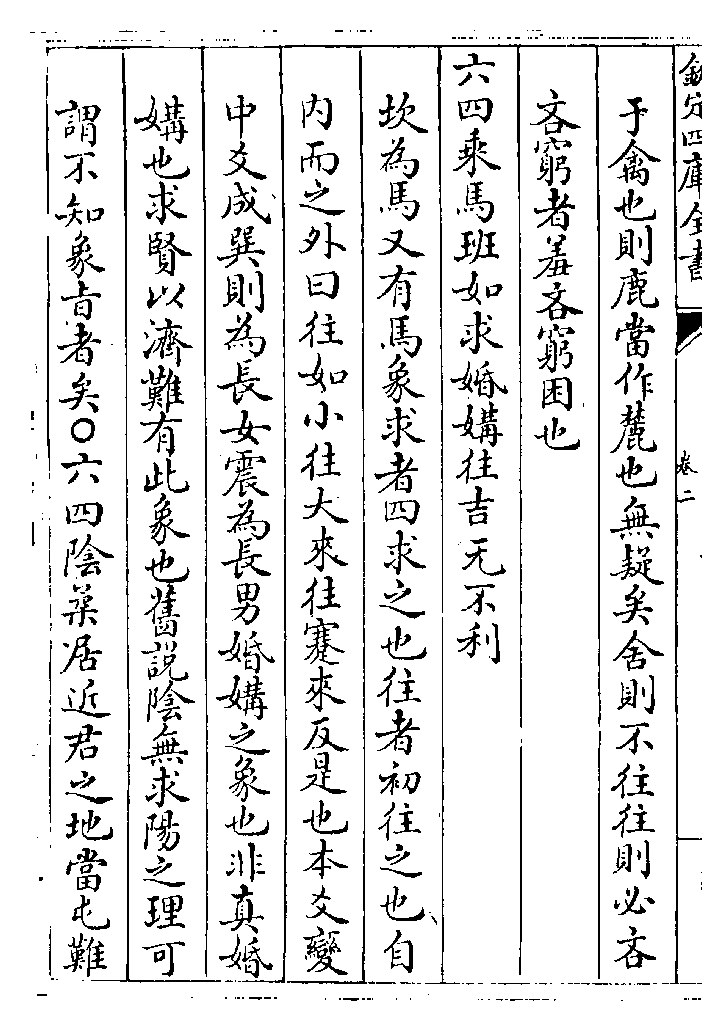 欽定四庫全書
卷二
于禽也則鹿當作麓也無疑矣舍則不往往則必吝
吝窮者羞吝窮困也
六四乘馬班如求婚媾往吉无不利
坎為馬又有馬象求者四求之也往者初往之也自
内而之外曰往如小往大來往蹇來反是也本爻變
中爻成巽則為長女震為長男婚媾之象也非真婚
媾也求賢以濟難有此象也舊說陰無求陽之理可
謂不知象旨者矣○六四陰柔居近君之地當屯難